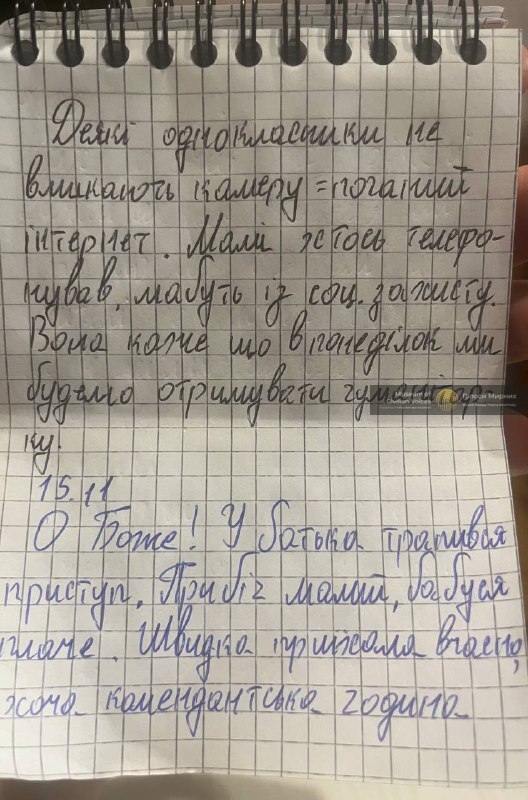 Деякі однокласники не
вмикають камеру = поганий
інтернет. Мамі хтось телефо-
нував, мабуть із соц. захисту.
Вона каже що в понеділок ми
будемо отримувати гуманітар-
ку.
15.11
О Боже! У батька трапився
приступ. Прибіг малий, бабуся
плаче. Швидка приїхала вчасно,
хоча комендантська година
Museum of
Civilian Voices
Голоси Мирних